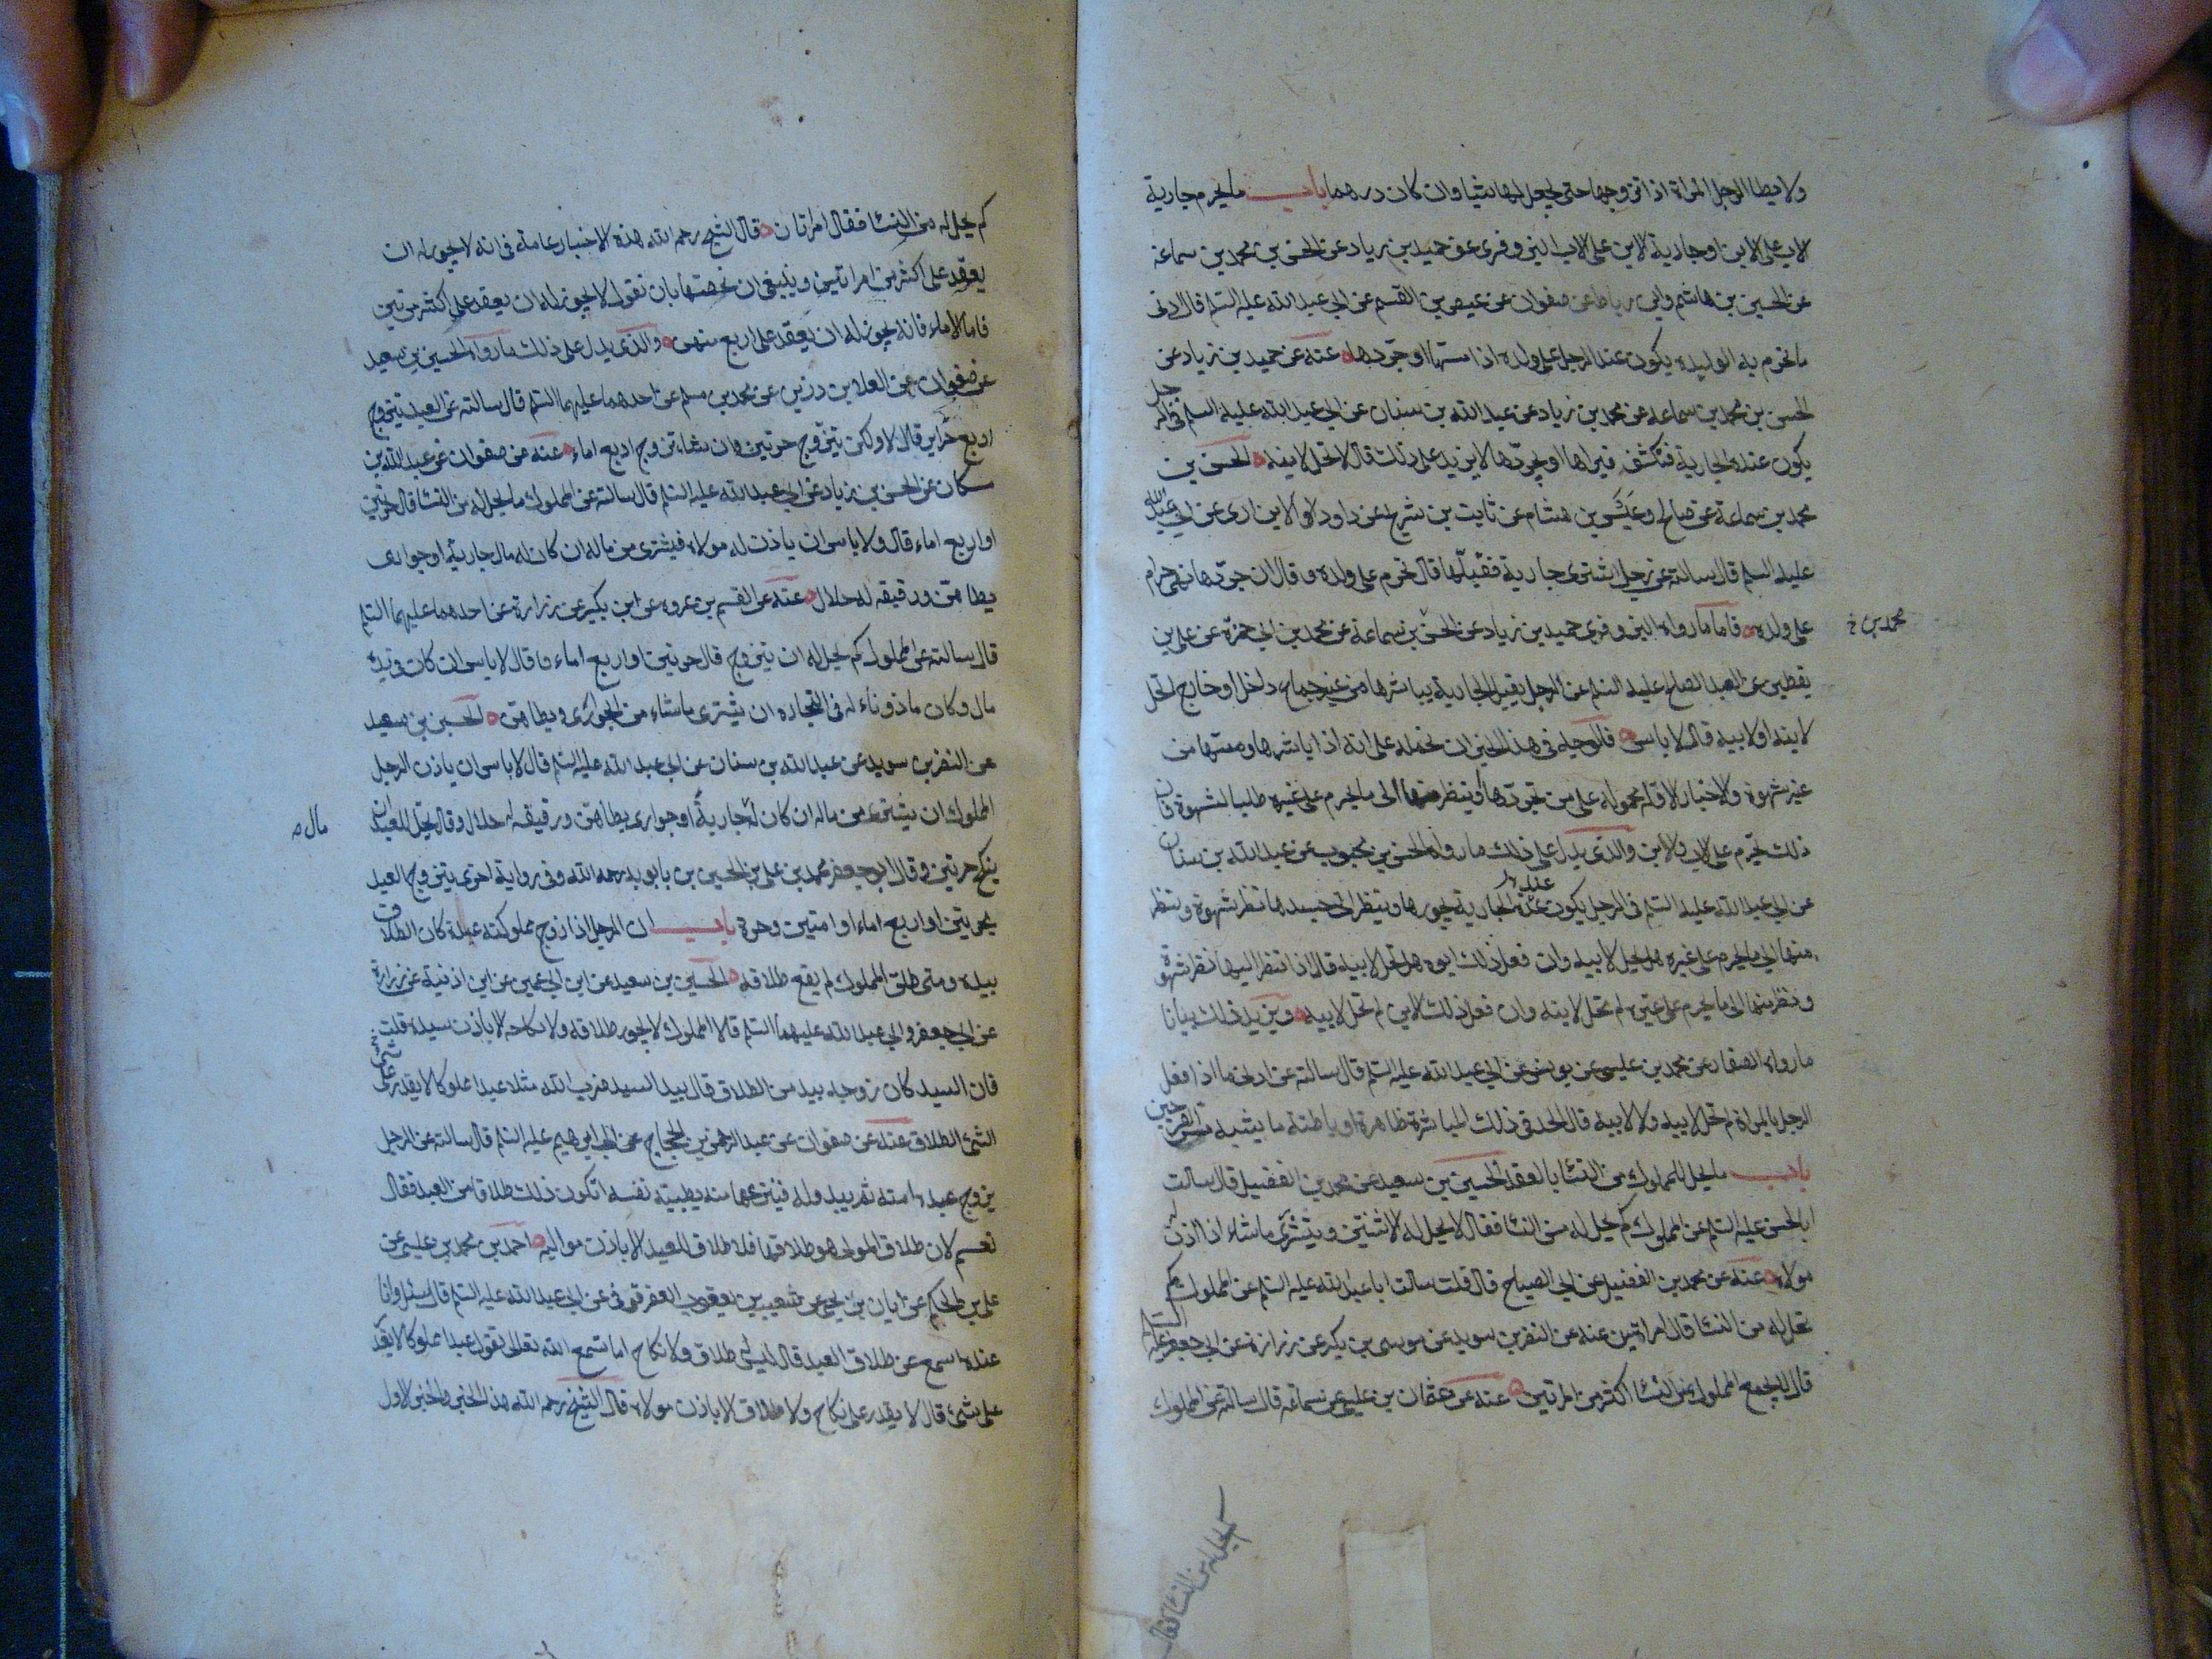 ولا يطا الرجل المراة اذا تزوجها حتى يجعل لها شيا وان كان درهما باب ما يحرم جارية
الاب على الابن او جارية الابن على الاب البزوفرى عن حميد بن زياد عن الحسن بن محمد بن سماعة
عن الحسين بن هاشم وابن رباط عن صفوان عن عيص بن القسم عن ابى عبد الله عليه السلم قال ادنى
ما تحرم به الوليده يكون عند الرجل على ولده اذا مسها او جردها عنه عن حميد بن زياد عن
الحسن بن محمد بن سماعة عن محمد بن زياد عن عبد الله بن سنان عن ابى عبد الله عليه السلم فى الرجل
يكون عنده الجارية فتكشف فيراها او يجردها لا يزيد على ذلك قال لا تحل لابنه الحسن بن
محمد بن سماعة عن صالح وعبيس بن هشام عن ثابت بن شريح عن داود الابزارى عن ابى عبد الله
عليه السلم قال سالته عن رجل اشترى جارية فقبلها قال تحرم على ولده وقال ان جردها فهى حرام
على ولده فاما ما رواه البزوفرى عن حميد بن زياد عن الحسن بن سماعة عن محمد بن ابى حمزة عن على بن
محمد بن خ
يقطين عن العبد الصالح عليه السلم عن الرجل يقبل الجارية يباشرها من غير جماع داخل او خارج اتحل
لابنه او لابيه قال لا باس فالوجه فى هذا الخبر ان نحمله على انه اذا باشرها ومسها من
غير شهوة والاخبار الاوله محمولة على من تجردها وينظر منها الى ما يحرم على غيره طلبا لشهوة فان
ذلك يحرم على الاب والابن والذى يدل على ذلك ما رواه الحسن بن محبوب عن عبد الله بن سنان
عن ابى عبد الله عليه السلم فى الرجل يكون عنده الجارية يجردها وينظر الى جسدها نظر شهوة وينظر
منها الى ما يحرم على غيره هل تحل لابيه وان فعل ذلك ابوه هل تحل لابنه قال اذا نظر اليها نظر شهوة
ونظر منها الى ما يحرم على غيره لم تحل لابنه وان فعل ذلك الابن لم تحل لابيه ويزيد ذلك بيانا
ما رواه الصفار عن محمد بن عيسى عن يونس عن ابى عبد الله عليه السلم قال سالته عن ادنى ما اذا فعل
الرجل بالمراة لم تحل لابيه ولا لابنه قال الحد فى ذلك المباشرة ظاهرة او باطنة ما يشبه مس الفرجين
باب ما يحل للمملوك من النسا بالعقد الحسين بن سعيد عن محمد بن الفضيل قال سالت
ابا الحسن عليه السلم عن المملوك كم يحل له من النسا فقال لا يحل له الا اثنتين ويتسرى ما شاء اذا اذن له
مولاه عنه عن محمد بن الفضيل عن ابى الصباح قال قلت سالت ابا عبد الله عليه السلم عن المملوك كم
تحل له من النسا قال امراتين عنه عن النضر بن سويد عن موسى بن بكر عن زرارة عن ابى جعفر عليه السلم
قال لا يجمع المملوك من النسا اكثر من امراتين عنه عن عثمان بن عيسى عن سماعة قال سالته عن المملوك
كم يحل له من النسا فقال
كم يحل له من النسا فقال امراتان قال الشيخ رحمه الله هذه الاخبار عامة فى انه لا يجوز له ان
يعقد على اكثر من امراتين وينبغى ان نخصها بان نقول لا يجوز له ان يعقد على اكثر من حرتين
فاما الاماء فانه يجوز له ان يعقد على اربع منهن والذى يدل على ذلك ما رواه الحسين بن سعيد
عن صفوان عن العلا بن رزين عن محمد بن مسلم عن احدهما عليهما السلم قال سالته عن العبد يتزوج
اربع حراير قال لا ولكن يتزوج حرتين وان شاء تزوج اربع اماء عنه عن صفوان عن عبد الله بن
مسكان عن الحسن بن زياد عن ابى عبد الله عليه السلم قال سالته عن المملوك ما يحل له من النسا قال حرتين
او اربع اماء قال ولا باس ان ياذن له مولاه فيشترى من ماله ان كان له مال جارية او جوارى
يطاهن ورقيقه له حلال عنه عن القسم بن عروه عن ابن بكير عن زرارة عن احدهما عليهما السلم
قال سالته عن المملوك كم يحل له ان يتزوج قال حرتين او اربع اماء وقال لا باس ان كان فى يده
مال وكان ماذونا له فى التجاره ان يشترى ما شاء من الجوارى ويطاهن الحسين بن سعيد
عن النضر بن سويد عن عبد الله بن سنان عن ابى عبد الله عليه السلم قال لا باس ان ياذن الرجل
لمملوك ان يشترى من ماله ان كان له جارية او جوارى يطاهن ورقيقه له حلال وقال يحل للعبد ان
مال
ينكح حرتين وقال ابو جعفر محمد بن على بن الحسين بن بابويه رحمه الله وفى رواية اخرى يتزوج العبد
بحرتين او اربع اماء او امتين وحرة باب ان الرجل اذا زوج مملوكته عبده كان الطلاق
بيده ومتى طلق المملوك لم يقع طلاقه الحسين بن سعيد عن ابن ابى عمير عن ابن اذنية عن زرارة
عن ابى جعفر وابى عبد الله عليهما السلم قالا المملوك لا يجوز طلاقه ولا نكاحه الا باذن سيده قلت
فان السيد كان زوجه بيد من الطلاق قال بيد السيد ضرب الله مثلا عبدا مملوكا لا يقدر على شئ
الشئ الطلاق عنه عن صفوان عن عبد الرحمن بن الحجاج عن ابى ابرهيم عليه السلم قال سالته عن الرجل
يزوج عبده امته ثم يبدو له فينزعها منه بطيبة نفسه اتكون ذلك طلاقا من العبد فقال
نعم لان طلاق المولى هو طلاقها فلا طلاق للعبد الا باذن مواليه احمد بن محمد بن عيسى عن
على بن الحكم عن ابان بن يحيى عن شعيب بن يعقوب العقرقوفى عن ابى عبد الله عليه السلم قال سئل وانا
عنده اسمع عن طلاق العبد قال ليس له طلاق ولا نكاح اما تسمع الله تعالى يقول عبدا مملوكا لا يقدر
على شئ قال لا يقدر على نكاح ولا طلاق الا باذن مولاه قال الشيخ رحمه الله هذا الخبر والخبر الاول